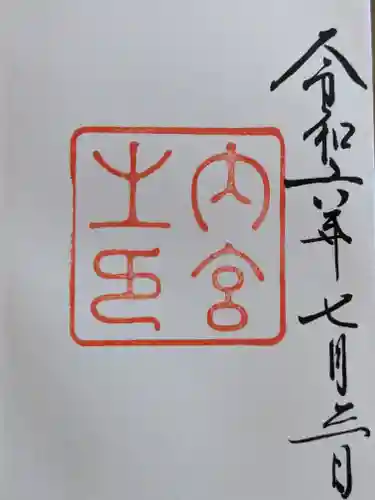 令和六年七月三日
内宮
之印